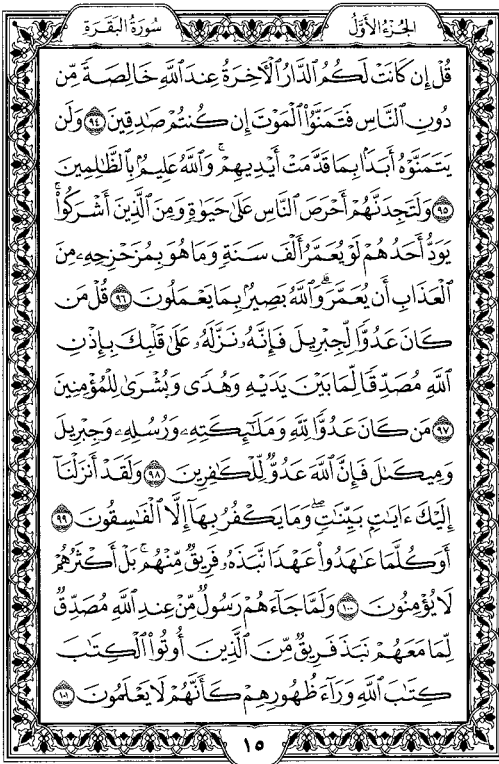 الجُزْءُ الأَوَّلُ
سُورَةُ البَقَرَةِ
قُلْ إِن كَانَتْ لَكُمُ ٱلدَّارُ ٱلْأَخِرَةُ عِندَ ٱللَّهِ خَالِصَةً مِّن
دُونِ ٱلنَّاسِ فَتَمَنَّوُا۟ ٱلْمَوْتَ إِن كُنتُمْ صَٰدِقِينَ ۝٩٤ وَلَن
يَتَمَنَّوْهُ أَبَدًۢا بِمَا قَدَّمَتْ أَيْدِيهِمْ ۗ وَٱللَّهُ عَلِيمٌۢ بِٱلظَّٰلِمِينَ
۝٩٥ وَلَتَجِدَنَّهُمْ أَحْرَصَ ٱلنَّاسِ عَلَىٰ حَيَوٰةٍ وَمِنَ ٱلَّذِينَ أَشْرَكُوا۟ ۚ
يَوَدُّ أَحَدُهُمْ لَوْ يُعَمَّرُ أَلْفَ سَنَةٍ وَمَا هُوَ بِمُزَحْزِحِهِۦ مِنَ
ٱلْعَذَابِ أَن يُعَمَّرَ ۗ وَٱللَّهُ بَصِيرٌۢ بِمَا يَعْمَلُونَ ۝٩٦ قُلْ مَن
كَانَ عَدُوًّا لِّجِبْرِيلَ فَإِنَّهُۥ نَزَّلَهُۥ عَلَىٰ قَلْبِكَ بِإِذْنِ
ٱللَّهِ مُصَدِّقًا لِّمَا بَيْنَ يَدَيْهِ وَهُدًى وَبُشْرَىٰ لِلْمُؤْمِنِينَ
۝٩٧ مَن كَانَ عَدُوًّا لِّلَّهِ وَمَلَٰٓئِكَتِهِۦ وَرُسُلِهِۦ وَجِبْرِيلَ
وَمِيكَىٰلَ فَإِنَّ ٱللَّهَ عَدُوٌّ لِّلْكَٰفِرِينَ ۝٩٨ وَلَقَدْ أَنزَلْنَآ
إِلَيْكَ ءَايَٰتٍۭ بَيِّنَٰتٍ ۖ وَمَا يَكْفُرُ بِهَآ إِلَّا ٱلْفَٰسِقُونَ ۝٩٩
أَوَكُلَّمَا عَٰهَدُوا۟ عَهْدًا نَّبَذَهُۥ فَرِيقٌ مِّنْهُم ۚ بَلْ أَكْثَرُهُمْ
لَا يُؤْمِنُونَ ۝١٠٠ وَلَمَّا جَآءَهُمْ رَسُولٌ مِّنْ عِندِ ٱللَّهِ مُصَدِّقٌ
لِّمَا مَعَهُمْ نَبَذَ فَرِيقٌ مِّنَ ٱلَّذِينَ أُوتُوا۟ ٱلْكِتَٰبَ
كِتَٰبَ ٱللَّهِ وَرَآءَ ظُهُورِهِمْ كَأَنَّهُمْ لَا يَعْلَمُونَ ۝١٠١
١٥